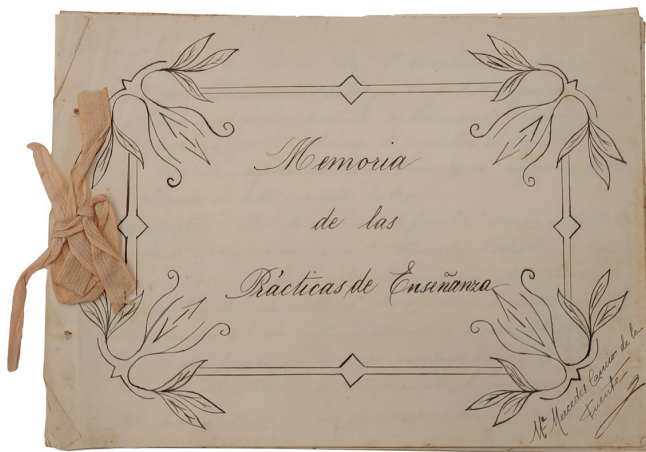 Memoria
de las
Prácticas de Enseñanza
Mª Mercedes de la
Fuente